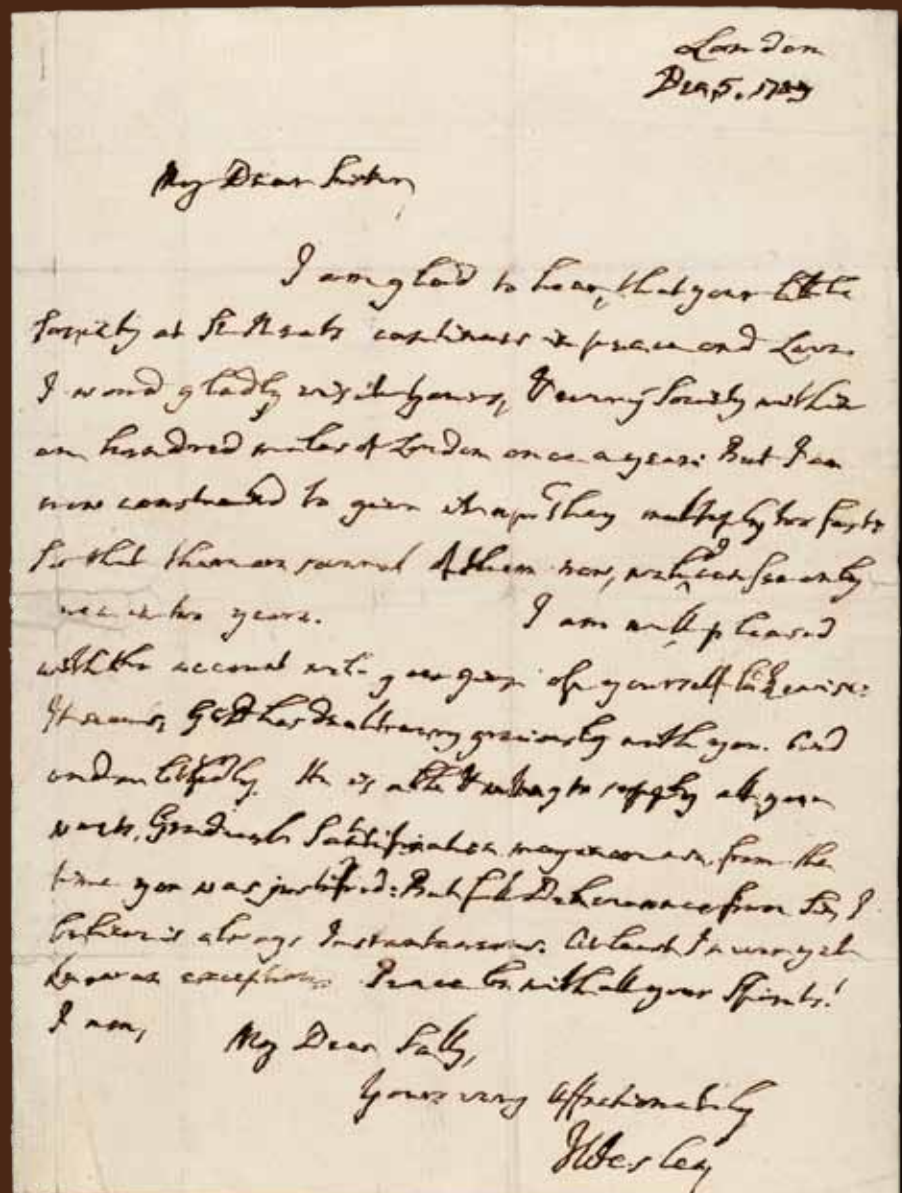 London
Dec. 5. 1789
My Dear Sister,
I am glad to hear, that your little
Society at St. Neots continues in peace and Love.
I woud gladly visit yours, & every Society within
an hundred miles of London once a year: But I am
now constrained to give it up: They multiply too fast:
So that there are several of them now, wch I can see only
once in two years. I am well pleased
with the account wch you give of yourself likewise:
It seems, God has dealt very graciously with you. And
undoubtedly He is able & willing to supply all your
wants. Gradual Sanctification may increase, from the
time you was justified: But full Deliverance from Sin, I
believe is always Instantaneous. At least I never yet
knew an exception. Peace be with all your Spirits!
I am,
My Dear Sally,
Yours very Affectionately
JWesley